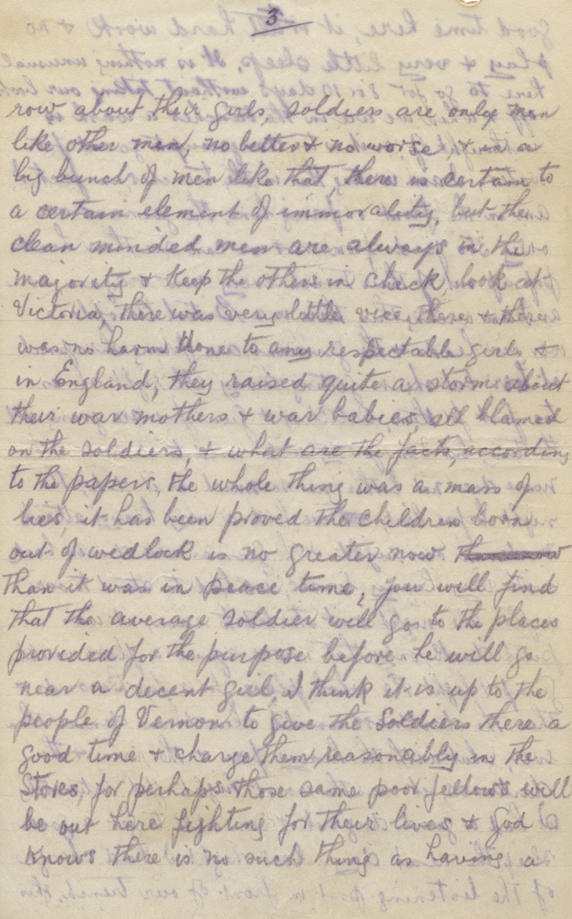 3
row about their girls, soldiers are only men
like other men, no better & no worse, & in a
big bunch of men like that, there is certain to
a certain element of immorality, but the
clean minded men are always in the
majority & keep the others in check, look at
Victoria, there was every little vice, there & there
was no harm done to any respectable girls, &
in England, they raised quite a storm about
their war mothers & war babies, all blamed
on the soldiers & what are the facts, according
to the papers, the whole thing was a mass of
lies, it has been proved the children born
out of wedlock is no greater now
than it was in peace time, you will find
that the average soldier will go to the places
provided for the purpose before he will go
near a decent girl, I think it is up to the
people of Vernon to give the Soldiers there a
good time & charge them reasonably in the
Stores, for perhaps those same poor fellows will
be out here fighting for their lives & God
knows there is no such thing as having a